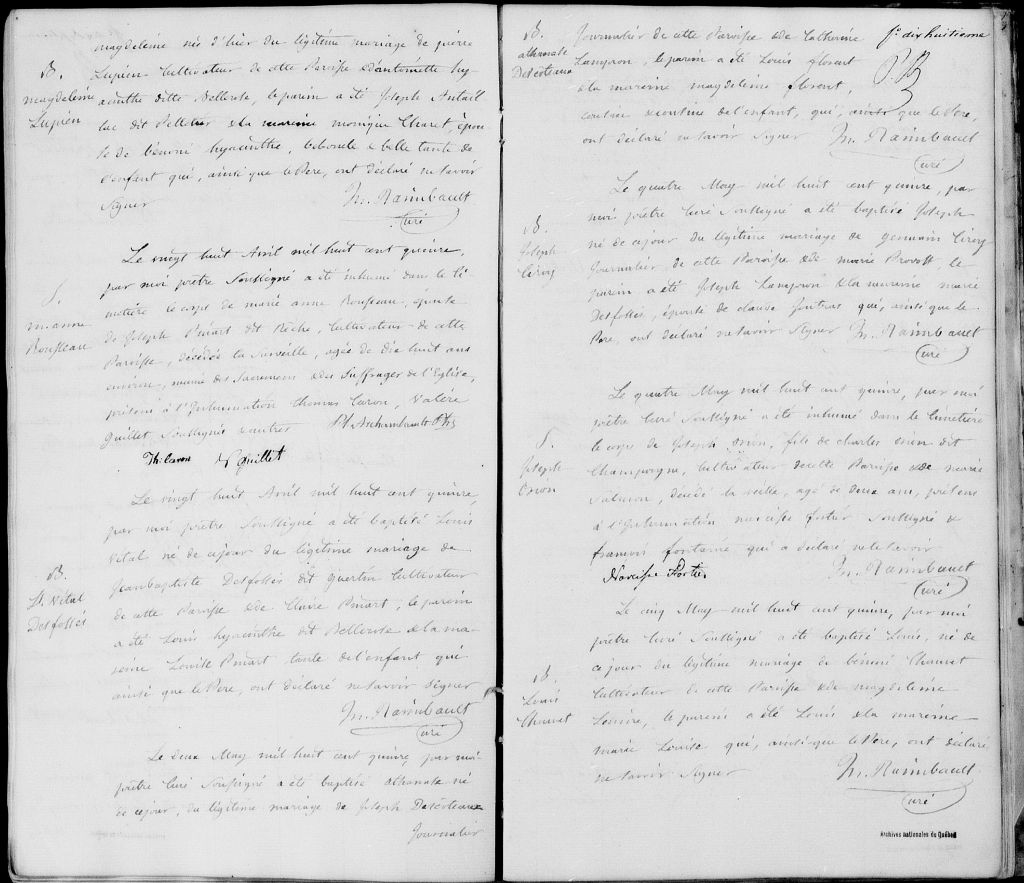 magdeleine née d'hier du légitime mariage de pierre
B.
magdeleine
Lupien
Lupien Cultivateur de cette Paroisse & d'antoinette hy-
acinthe ditte Bellerose, le parein a été Joseph
dit Pelletier & la mareine monique Charet, épou
se de bénoni hyacinthe, & belle tante de
l'enfant qui, ainsi que le Pere, ont déclaré ne savoir
signer
M. Raimbault
curé
S.
m. anne
Rousseau
Le vingt huit Avril mil huit cent quinze,
par moi prêtre soussigné a été inhumé dans le ci-
metière le corps de marie anne Rousseau, épouse
de Joseph Pinart dit Roche, Cultivateur de cette
Paroisse, décédée la surveille, agée de dix huit ans
environ, munie des Sacremens & des suffrages de l'Eglise,
présens à l'Inhumation thomas Caron, Valère
Guillet, soussignés & autres
Archambault Ptre
Th. Caron V Guillet
B.
Ls. Vital
Desfossés
Le vingt huit Avril mil huit cent quinze,
par moi prêtre soussigné a été baptisé Louis
vital né de ce jour du légitime mariage de
Jeanbaptiste Desfossés dit quentin Cultivateur
de cette Paroisse & de Claire Pinart, le parein
a été Louis hyacinthe dit Bellerose & la ma-
reine Louise Pinart tante de l'enfant qui
ainsi que le Pere, ont déclaré ne savoir signer
M. Raimbault
curé
Le deux May mil huit cent quinze, par moi
prêtre curé soussigné a été baptisé athanase né
de ce jour, du légitime mariage de Joseph Descoteaux
Journalier
B.
athanase
Descoteaux
fo. dix huitième
Journalier de cette Paroisse & de Catherine
Lampron, le parein a été Louis florent
& la mareine magdeleine florent,
cousin & cousine de l'enfant, qui, ainsi que le Pere,
ont déclaré ne savoir signer
M. Raimbault
curé
B.
Joseph
Ciroy
Le quatre May mil huit cent quinze, par
moi prêtre curé soussigné a été baptisé Joseph
né de ce jour du légitime mariage de germain Ciroy
Journalier de cette Paroisse & de marie Provost, le
parein a été Joseph Lampron & la mareine marie
Desfossés, épouse de claude Joutras qui, ainsi que le
Pere, ont déclaré ne savoir signer M. Raimbault
curé
S.
Joseph
Orion
Le quatre May mil huit cent quinze, par moi
prêtre curé soussigné a été inhumé dans le Cimetière
le corps de Joseph orion, fils de charles orion dit
Champagne, Cultivateur de cette Paroisse & de marie
Salmon, décédé la veille, agé de deux ans, présens
à l'Inhumation narcisse fortier soussigné &
francois fontaine qui a déclaré ne le savoir
Narcisse Fortier
M. Raimbault
curé
B.
Louis
Chauret
Le cinq May mil huit cent quinze, par moi
prêtre curé soussigné a été baptisé Louis, né de
ce jour du légitime mariage de bénoni Chauret
Cultivateur de cette Paroisse & de magdeleine
le parein a été Louis & la mareine
marie Louise qui, ainsi que le Pere, ont déclaré
ne savoir signer
M. Raimbault
curé
Archives nationales du Québec